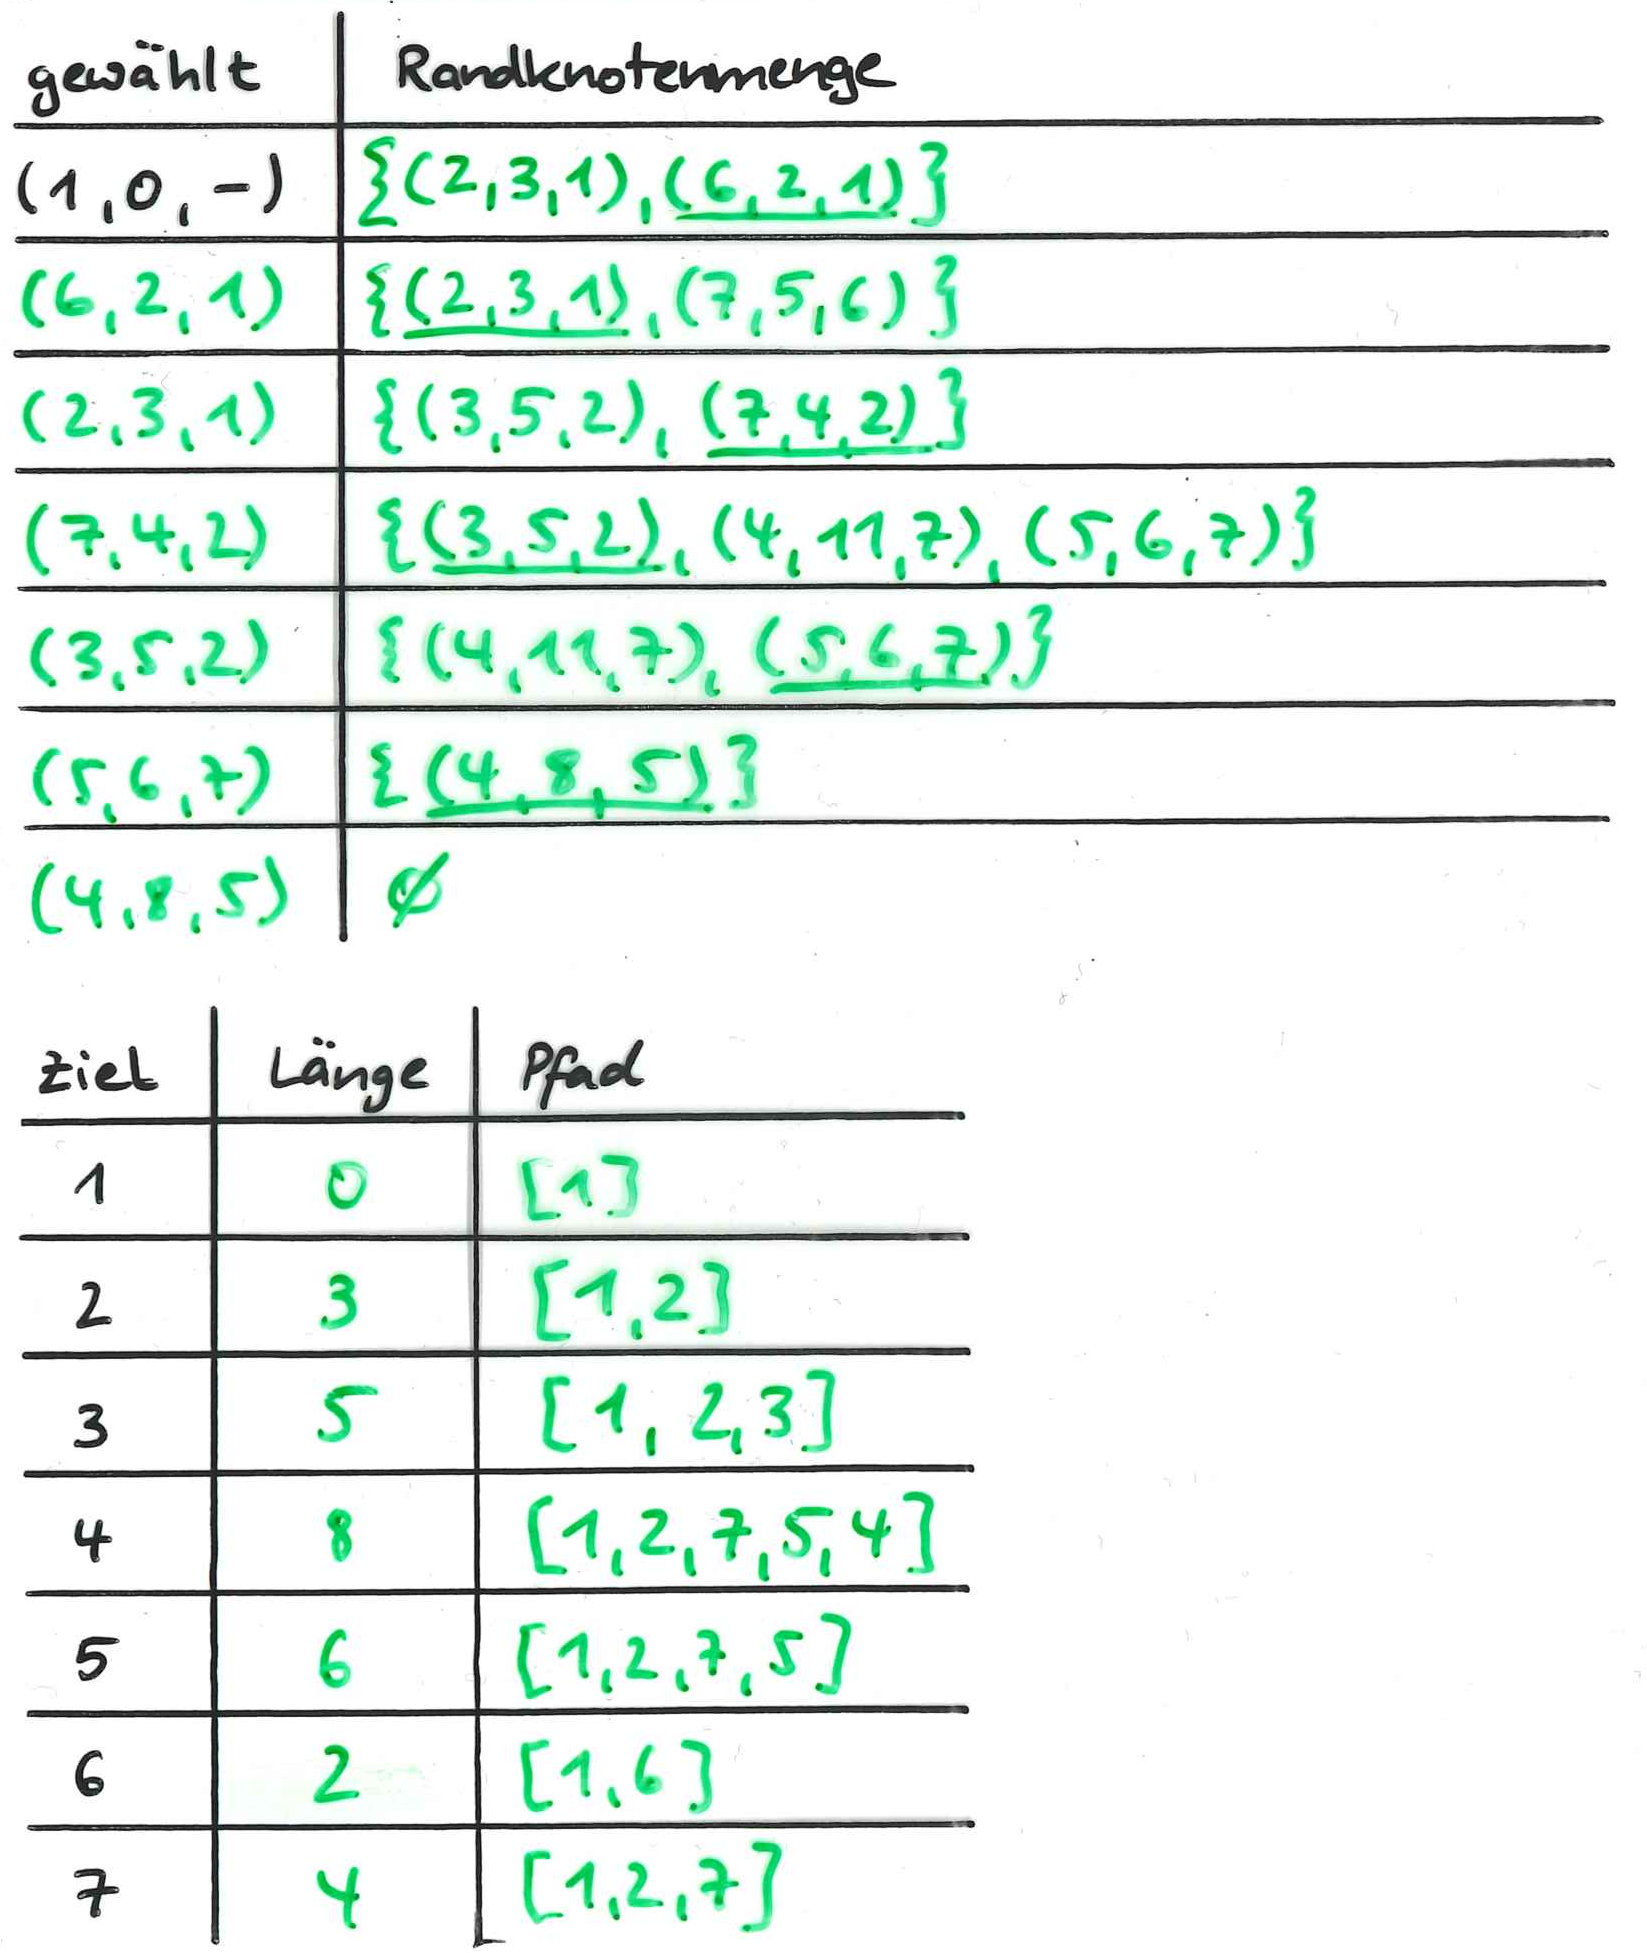 gewählt Randknotenmenge
(1,0,-) {(2,3,1),(6,2,1)}
(6,2,1) {(2,3,1),(7,5,6)}
(2,3,1) {(3,5,2),(7,4,2)}
(7,4,2) {(3,5,2),(4,11,7),(5,6,7)}
(3,5,2) {(4,11,7),(5,6,7)}
(5,6,7) {(4,8,5)}
(4,8,5) ∅
Ziel Länge Pfad
1 0 [1]
2 3 [1,2]
3 5 [1,2,3]
4 8 [1,2,7,5,4]
5 6 [1,2,7,5]
6 2 [1,6]
7 4 [1,2,7]